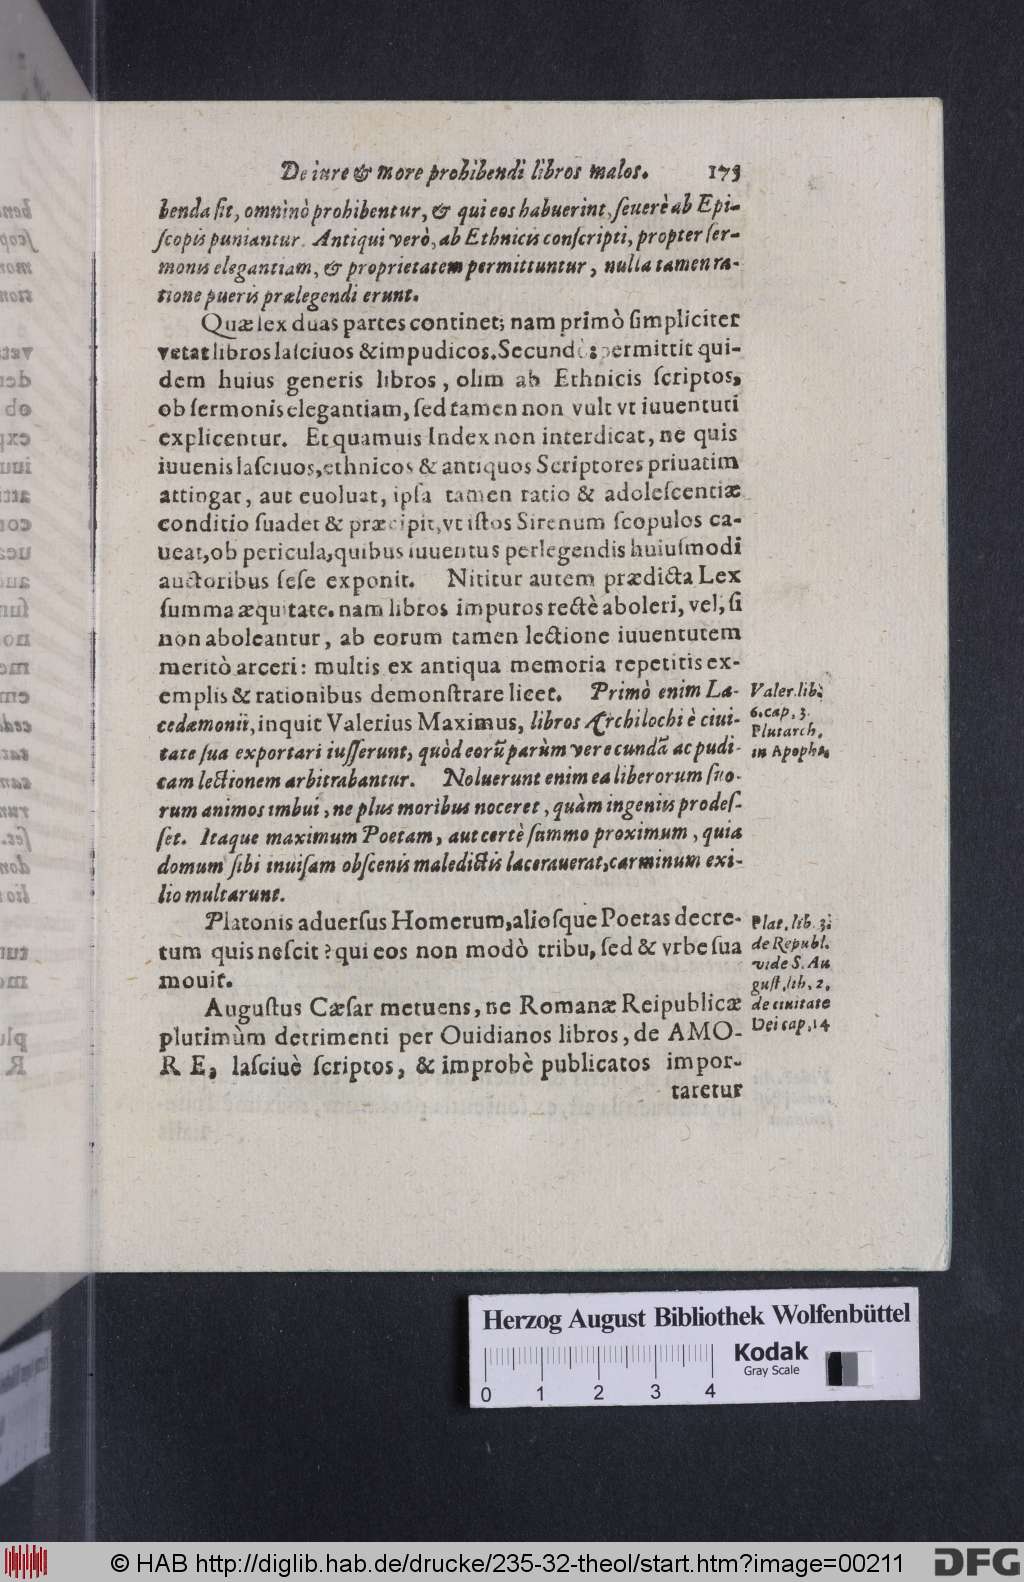 De iure & more prohibendi libros malos. 173
benda sit, omninò prohibentur, & qui eos habuerint, ſeuerè ab Epi-
ſcopis puniantur. Antiqui verò, ab Ethnicis conſcripti, propter ſer-
monis elegantiam, & proprietatem permittuntur, nulla tamen ra-
tione pueris prælegendi erunt.
Quæ lex duas partes continet; nam primò ſimpliciter
vetat libros laſciuos & impudicos. Secundò: permittit qui-
dem huius generis libros, olim ab Ethnicis ſcriptos,
ob ſermonis elegantiam, ſed tamen non vult vt iuuentuti
explicentur. Et quamuis Index non interdicat, ne quis
iuuenis laſciuos, ethnicos & antiquos Scriptores priuatim
attingat, aut euoluat, ipſa tamen ratio & adoleſcentiæ
conditio ſuadet & præcipit, vt iſtos Sirenum ſcopulos ca-
ueat, ob pericula, quibus iuuentus perlegendis huiuſmodi
auctoribus ſeſe exponit. Nititur autem prædicta Lex
ſumma æquitate. nam libros impuros rectè aboleri, vel, ſi
non aboleantur, ab eorum tamen lectione iuuentutem
meritò arceri: multis ex antiqua memoria repetitis ex-
emplis & rationibus demonſtrare licet. Primò enim La-
cedæmonii, inquit Valerius Maximus, libros Archilochi è ciui-
tate ſua exportari iuſſerunt, quòd eorũ parùm verecundã ac pudi-
cam lectionem arbitrabantur. Noluerunt enim ea liberorum ſuo-
rum animos imbui, ne plus moribus noceret, quàm ingeniis prodeſ-
ſet. Itaque maximum Poetam, aut certè ſummo proximum, quia
domum ſibi inuiſam obſcenis maledictis lacerauerat, carminum exi-
lio multarunt.
Valer. lib.
6. cap. 3.
Plutarch.
in Apoph.
Platonis aduerſus Homerum, alioſque Poetas decre-
tum quis neſcit? qui eos non modò tribu, ſed & vrbe ſua
mouit.
Auguſtus Cæſar metuens, ne Romanæ Reipublicæ
plurimùm detrimenti per Ouidianos libros, de AMO-
RE, laſciuè ſcriptos, & improbè publicatos impor-
taretur
Plat. lib. 3.
de Republ.
vide S. Au
guſt. lib. 2.
de ciuitate
Dei cap. 14
Herzog August Bibliothek Wolfenbüttel
Kodak
Gray Scale
0 1 2 3 4
© HAB http://diglib.hab.de/drucke/235-32-theol/start.htm?image=00211
DFG